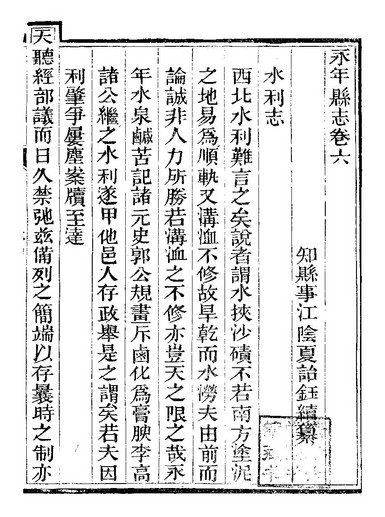 永年縣志卷六
知縣事江陰夏詒鈺續纂
水利志
西北水利難言之矣說者謂水挾沙磧不若南方塗泥
之地易爲順軌又溝洫不修故旱乾而水澇夫由前而
論誠非人力所勝若溝洫之不修亦豈天之限之哉永
年水泉鹹苦記諸元史郭公規畫斥鹵化爲膏腴李高
諸公繼之水利遂甲他邑人存政舉是之謂矣若夫因
利肇爭屢塵案牘至達
天聽經部議而日久禁弛茲備列之簡端以存曩時之制亦